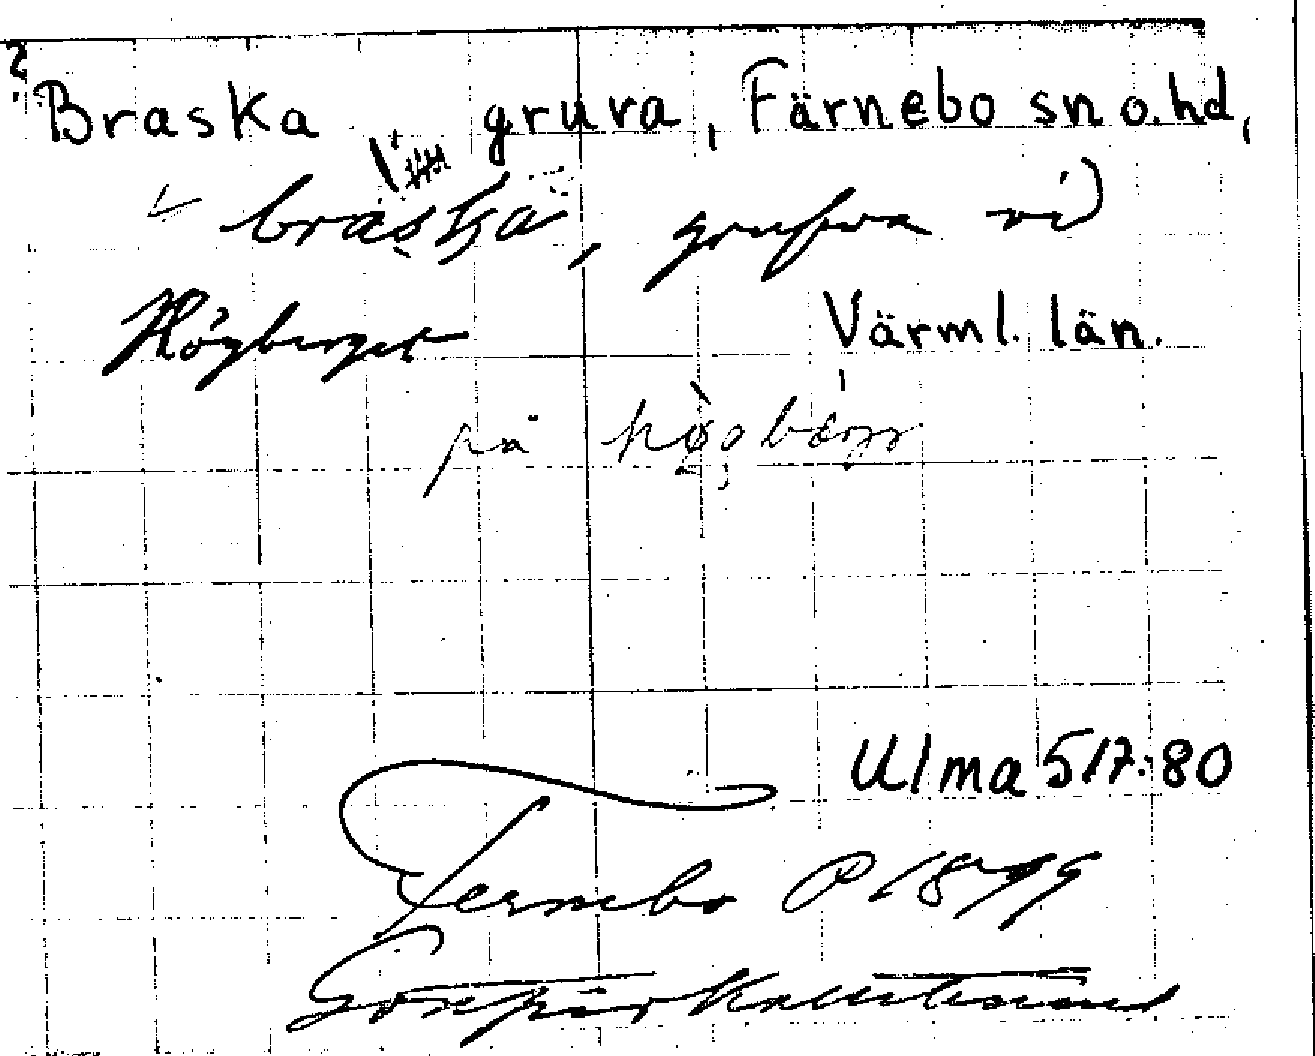 ? Braska gruva, Färnebo sn o. hd,
braska, grufva vid
Högberget Värml. län.
på högbærg
Ulma 517:80
Fernebo P 1879